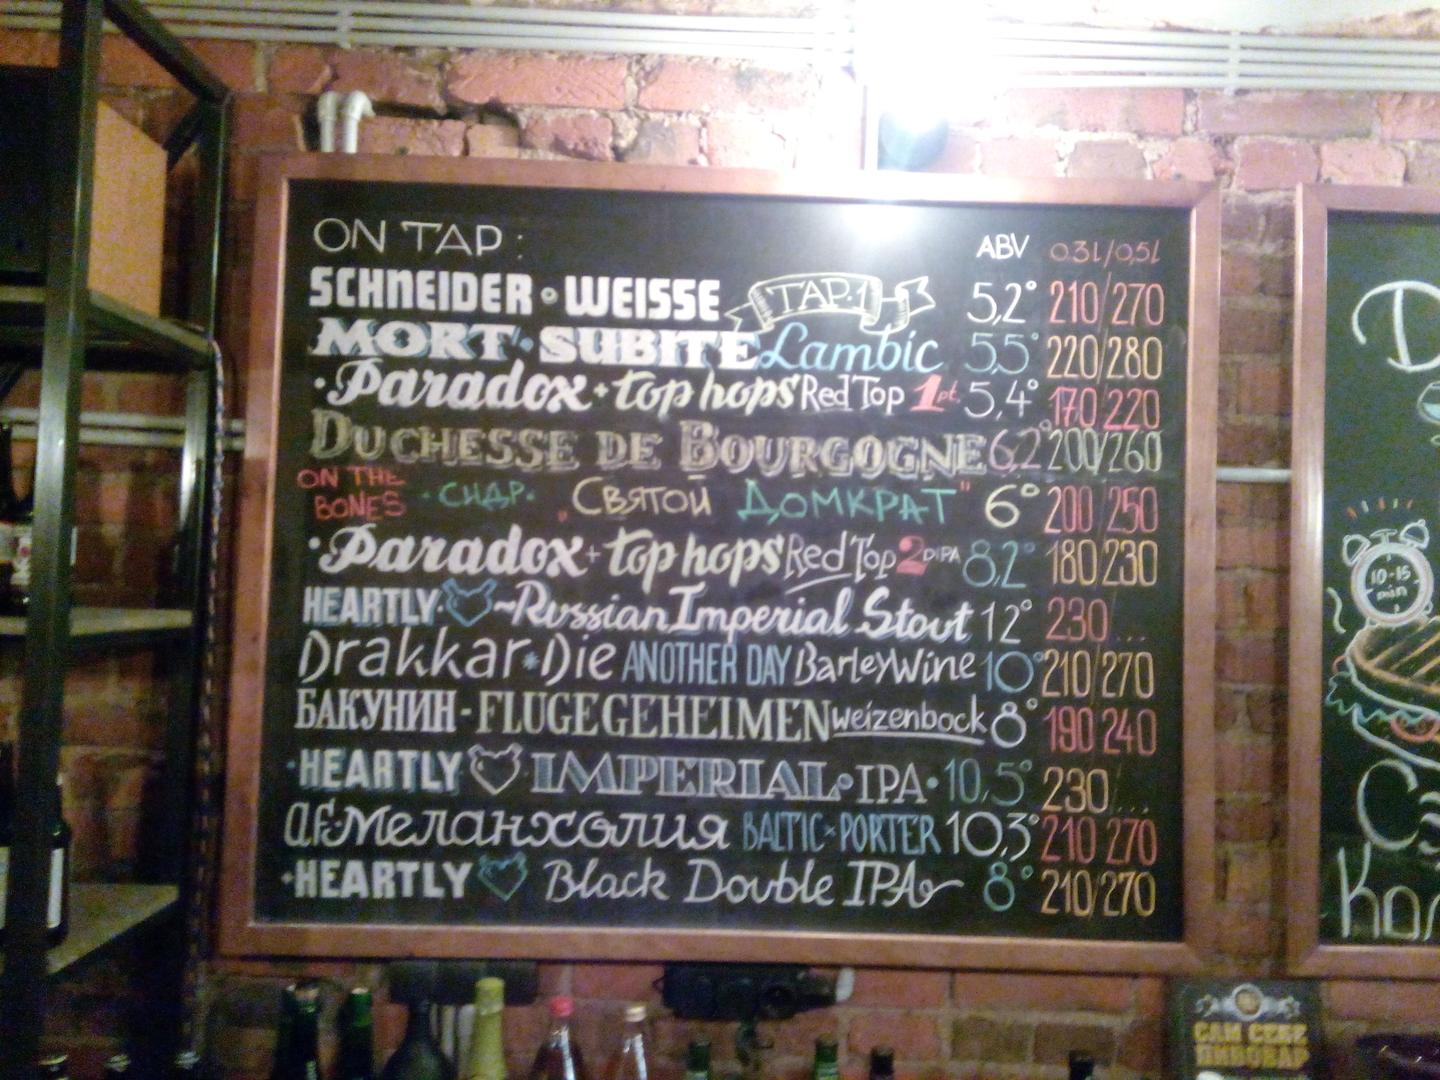 ON TAP : ABV 0.3l/0,5l
SCHNEIDER WEISSE TAP·1 5,2° 210/270
MORT·SUBITE Lambic 5,5° 220/280
· Paradox + top hops Red Top 1 pt. 5,4° 170/220
DUCHESSE DE BOURGOGNE 6,2° 200/260
ON THE BONES · СИДР · „СВЯТОЙ ДОМКРАТ" 6° 200/250
· Paradox + top hops Red Top 2 DIPA 8,2° 180/230
HEARTLY ~ Russian Imperial Stout 12° 230/...
Drakkar * Die ANOTHER DAY BarleyWine 10° 210/270
БАКУНИН - FLUGEGEHEIMEN weizenbock 8° 190/240
· HEARTLY IMPERIAL · IPA · 10,5° 230/...
AF Меланхолия BALTIC × PORTER 10,3° 210/270
· HEARTLY Black Double IPA 8° 210/270
10-15
min
САМ СЕБЕ
ПИВОВАР